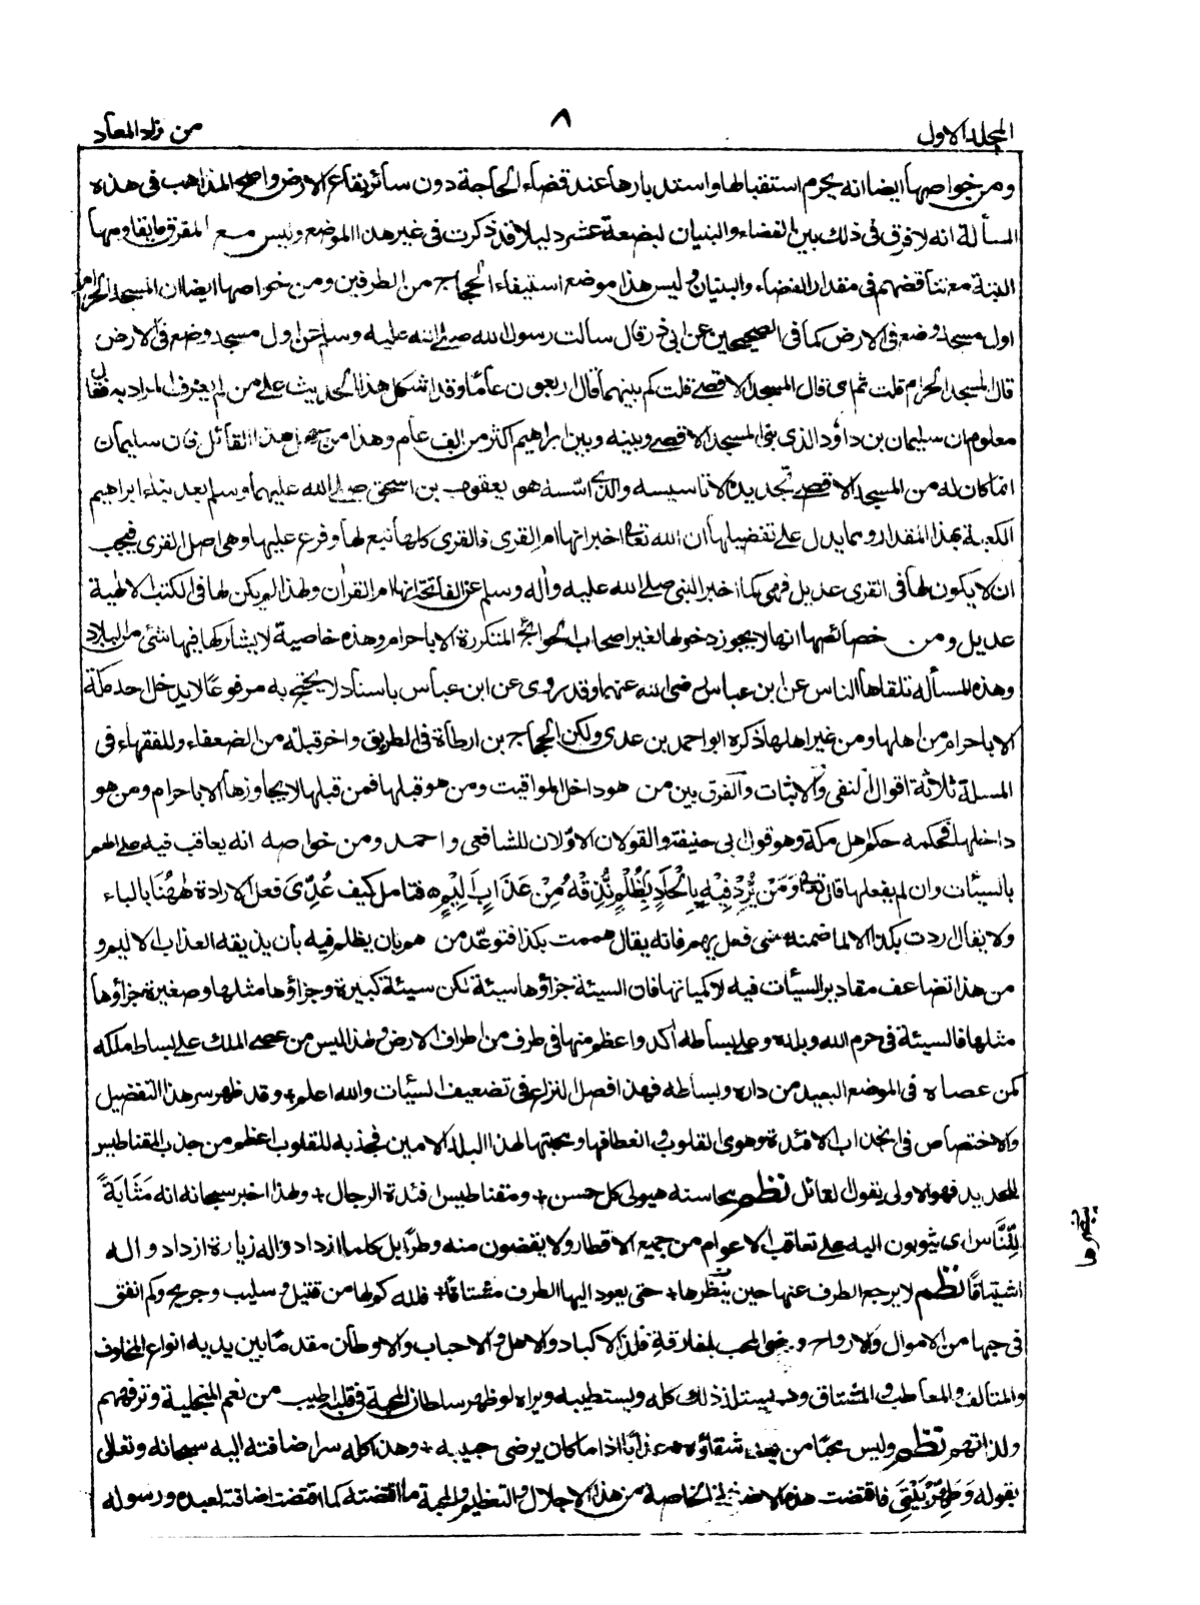 المجلد الاول
٨
من زاد المعاد
ومن خواصها ايضا انه يحرم استقبالها واستدبارها عند قضاء الحاجة دون سائر بقاع الارض واصح المذاهب فى هذه
المسألة انه لا فرق فى ذلك بين الفضاء والبنيان لبضعة عشر دليلا قد ذكرت فى غير هذا الموضع وليس مع المفرق ما يقاومها
البتة مع تناقضهم فى مقدار الفضاء والبنيان وليس هذا موضع استيفاء الحجاج من الطرفين ومن خواصها ايضا ان المسجد الحرام
اول مسجد وضع فى الارض كما فى الصحيحين عن ابى ذر قال سالت رسول الله صلى الله عليه وسلم عن اول مسجد وضع فى الارض
قال المسجد الحرام قلت ثم اى قال المسجد الاقصى قلت كم بينهما قال اربعون عاما وقد اشكل هذا الحديث على من لم يعرف المراد به فقال
معلوم ان سليمان بن داؤد الذى بنى المسجد الاقصى وبينه وبين ابراهيم اكثر من الف عام وهذا من جهل هذا القائل فان سليمان
انما كان له من المسجد الاقصى تجديده لا تاسيسه والذى اسسه هو يعقوب بن اسحق صلى الله عليهما وسلم بعد بناء ابراهيم
الكعبة بهذا المقدار ومما يدل على تفضيلها ان الله تعالى اخبر انها ام القرى فالقرى كلها تبع لها وفرع عليها وهى اصل القرى فيجب
ان لا يكون لها فى القرى عديل فهى كما اخبر النبى صلى الله عليه وأله وسلم عن الفاتحة انها ام القران ولهذا لم يكن لها فى الكتب الالهية
عديل ومن خصائصها انها لا يجوز دخولها لغير اصحاب الحوائج المتكررة الا باحرام وهذه خاصية لا يشاركها فيها شئ من البلاد
وهذه المسألة تلقاها الناس عن ابن عباس رضى الله عنهما وقد روى عن ابن عباس باسناد لا يحتج به مرفوعا لا يدخل احد مكة
الا باحرام من اهلها ومن غير اهلها ذكره ابو احمد بن عدى ولكن الحجاج بن ارطاة فى الطريق واخر قبله من الضعفاء وللفقهاء فى
المسلة ثلاثة اقوال النفى والاثبات والفرق بين من هو داخل المواقيت ومن هو قبلها فمن قبلها لا يجاوزها الا باحرام ومن هو
داخلها فحكمه حكم اهل مكة وهو قول ابى حنيفة والقولان الاولان للشافعى واحمد ومن خواصه انه يعاقب فيه على الهم
بالسيئات وان لم يفعلها قال تعالى وَمَنْ يُّرِدْ فِيْهِ بِاِلْحَادٍ بِظُلْمٍ نُّذِقْهُ مِنْ عَذَابٍ اَلِيْمٍ فتامل كيف عُدِّىَ فعل الارادة هٰهُنَا بالباء
ولا يقال اردت بكذا الا لما ضمنه معنى فعل يهم فانه يقال هممت بكذا فتوعد من هم بان يظلم فيه بأن يذيقه العذاب الاليم و
من هذا تضاعف مقادير السيأت فيه لا كمياتها فان السيئة جزاؤها سيئة لكن سيئة كبيرة وجزاؤها مثلها وصغيرة جزاؤها
مثلها فالسيئة فى حرم الله وبلده وعلى بساطه أكد واعظم منها فى طرف من اطراف الارض ولهذا ليس من عصى الملك على بساط ملكه
كمن عصاه فى الموضع البعيد من داره وبساطه فهذا فصل النزاع فى تضعيف السيئات والله اعلم + وقد ظهر سر هذا التفضيل
والاختصاص فى انجذاب الافئدة وهوى القلوب وانعطافها ومحبتها لهذا البلد الامين فجذبه للقلوب اعظم من جذب المقناطيس
للحديد فهو الاولى بقول القائل نظم محاسنه هيولى كل حسن + ومقناطيس افئدة الرجال + ولهذا اخبر سبحانه انه مَثَابَةً
لِّلنَّاس اى يثوبون اليه على تعاقب الاعوام من جميع الاقطار ولا يقضون منه وطرا بل كلما ازدادوا له زيارة ازدادوا له
اشتياقا نظم لا يرجع الطرف عنها حين ينظرها + حتى يعود اليها الطرف مشتاقا + فلله كم لها من قتيل وسليب وجريح وكم انفق
فى حبها من الاموال والارواح ورضى المحب بمفارقة فلذ الاكباد والاهل والاحباب والاوطان مقدما بين يديه انواع المخاوف
والمتالف والمعاطف والمشاق وهو يستلذ ذلك كله ويستطيبه ويراه لو ظهر سلطان المحبة فى قلبه اطيب من نعم المتحلية وترفههم
ولذاتهم نظم وليس محبا من يعد شقاؤه عذابا اذا ما كان يرضى حبيبه + وهذا كله سر اضافته اليه سبحانه وتعالى
بقوله وَطَهِّرْ بَيْتِىَ فاقتضت هذه الاضافة الخاصة من هذا الاجلال والتعظيم والمحبة ما اقتضته كما اقتضت اضافته لعبده ورسوله